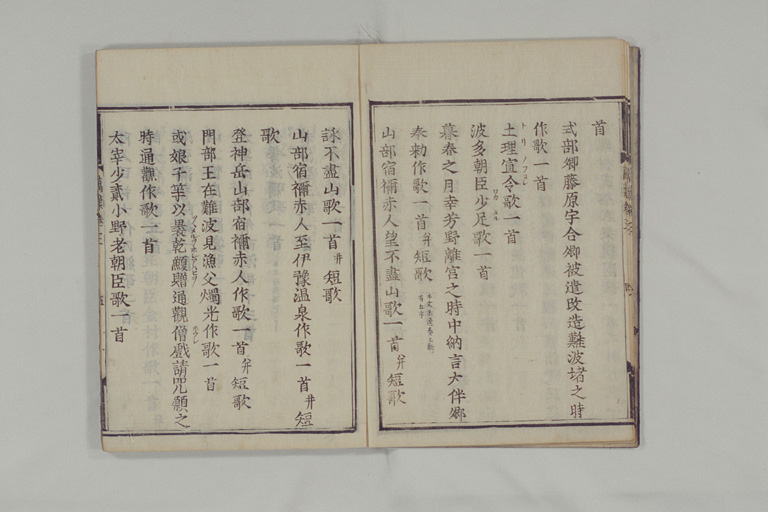 首
式部卿藤原宇合卿被遣改造難波堵之時
作歌一首
土理宣令歌一首
波多朝臣少足歌一首
暮春之月幸芳野離宮之時中納言大伴卿
奉勅作歌一首并短歌
山部宿禰赤人望不盡山歌一首并短歌
詠不盡山歌一首并短歌
山部宿禰赤人至伊豫温泉作歌一首并短
歌
登神岳山部宿禰赤人作歌一首并短歌
門部王在難波見漁父燭光作歌一首
或娘子等以褁乾鰒贈通觀僧戲請咒願之
時通觀作歌一首
太宰少貳小野老朝臣歌一首